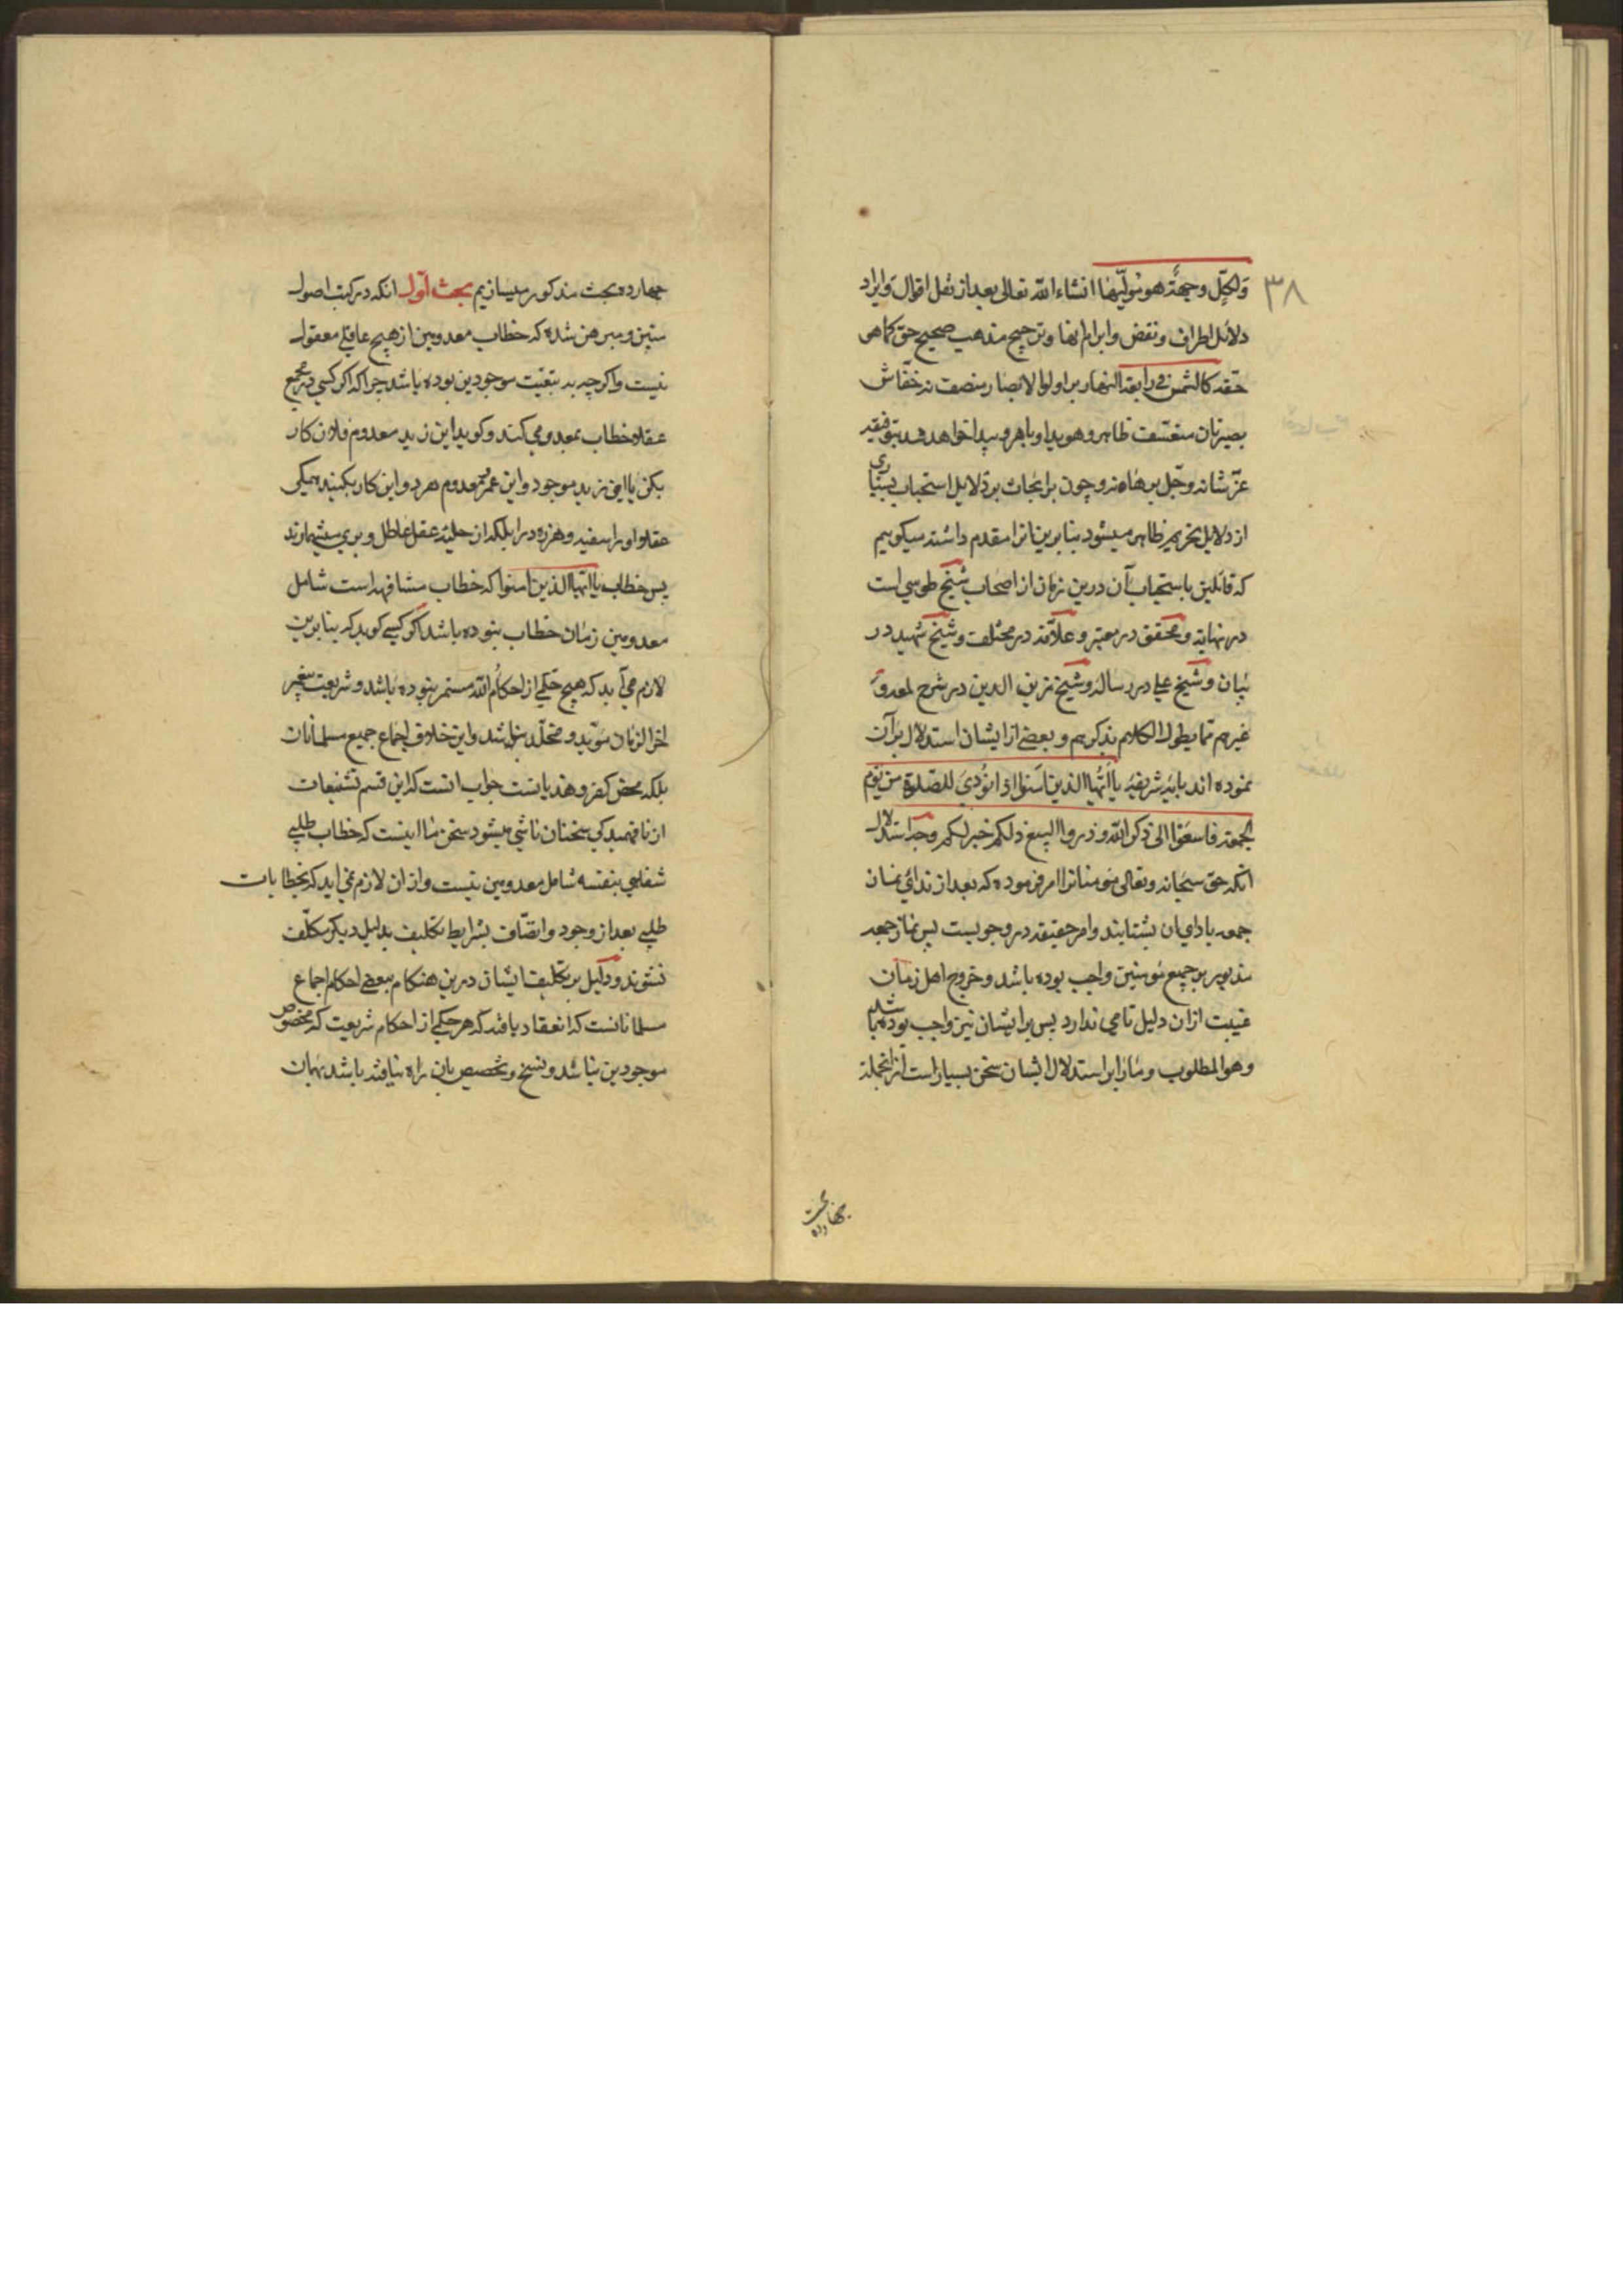 ۳۸
ولکل وجهة هو مولیها انشاء الله تعالی بعد از نقل اقوال و ایراد
دلائل اطراف و نقض و ابرام انها و ترجیح مذهب صحیح حق کما هو
حقه کالشمس فی رابعة النهار بر اولوا الابصار منصف نه خفاش
بصیرتان متعسف ظاهر و هویدا و باهر و پیدا خواهد شد بتوفیقه
عز شانه و جل برهانه و چون برائحاث بر دلایل استحباب بسیاری
از دلایل تحریم ظاهر میشود بنابرین انرا مقدم داشته میکوییم
که قائلین باستحباب آن درین زمان از اصحاب شیخ طوسی است
در نهایه و محقق در معتبر و علامه در مختلف و شیخ شهید در
بیان و شیخ علی در رساله و شیخ زین الدین در شرح لمعه و
غیرهم مما یطول الکلام بذکرهم و بعضی از ایشان استدلال بر آن
نموده اند بایه شریفه یا ایها الذین امنوا اذا نودی للصلوة من یوم
الجمعة فاسعوا الی ذکر الله و ذروا البیع ذلکم خیر لکم وجه استدلال
انکه حق سبحانه و تعالی مومنانرا امر فرموده که بعد از ندائی نماز
جمعه بادای ان بشتابند و امر حقیقه در وجوبست پس نماز جمعه
مذبور بر جمیع مومنین واجب بوده باشد و خروج اهل زمان
غیبت ازان دلیل تامی ندارد پس بر ایشان نیز واجب بوده باشد
و هو المطلوب و ما را بر استدلال ایشان سخن بسیار است از انجمله
چهارده بحث
چهارده بحث مذکور میسازیم بحث اول انکه در کتب اصول
متین و مبرهن شده که خطاب معدومین از هیچ عاقلی معقول
نیست و اکرچه به تبعیت موجودین بوده باشد چرا که اکر کسی در مجمع
عقلا خطاب بمعدومی کند و کوید این زید معدوم فلان کار
بکن یا این زید موجود و این عمرو معدوم هر دو این کار بکنید همکی
عقلا او را سفیه و هرزه درا بلکه از حلیه عقل عاطل و بری میشمارند
پس خطاب یا ایها الذین امنوا که خطاب مشافهه است شامل
معدومین زمان خطاب نبوده باشد اکر کسی کوید که بنابرین
لازم می آید که هیچ حکمی از احکام الله مستمر نبوده باشد و شریعت پیغمبر
اخر الزمان موبد و مخلد نباشد و این خلاف اجماع جمیع مسلمانان
بلکه محض کفر و هذیانست جواب انست که این قسم تشنیعات
از نافهمیدکی سخنان ناشی میشود سخن ما اینست که خطاب طلبی
شفاهی بنفسه شامل معدومین نیست و ازان لازم نمی اید که بخطابات
طلبی بعد از وجود و اتصاف بشرایط تکلیف بدلیل دیکر مکلف
نشوند و دلیل بر تکلیف ایشان درین هنکام ببعضی احکام اجماع
مسلمانانست که انعقاد یافته که هر حکمی از احکام شریعت که مخصوص
موجودین نباشد و نسخ و تخصیص بان راه نیافته باشد بهمان